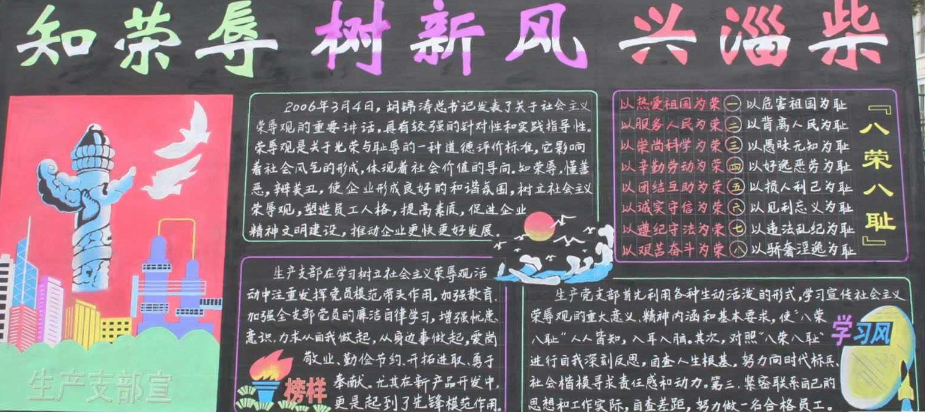 知荣辱 树新风 兴淄柴
2006年3月4日,胡锦涛总书记发表了关于社会主义
荣辱观的重要讲话,具有较强的针对性和实践指导性。
荣辱观是关于光荣与耻辱的一种道德评价标准,它影响
着社会风气的形成,体现着社会价值的导向。知荣辱,懂善
恶,辩美丑,使企业形成良好的和谐氛围,树立社会主义
荣辱观,塑造员工人格,提高素质,促进企业
精神文明建设,推动企业更快更好发展。
『八荣八耻』
以热爱祖国为荣 一 以危害祖国为耻
以服务人民为荣 二 以背离人民为耻
以崇尚科学为荣 三 以愚昧无知为耻
以辛勤劳动为荣 四 以好逸恶劳为耻
以团结互助为荣 五 以损人利己为耻
以诚实守信为荣 六 以见利忘义为耻
以遵纪守法为荣 七 以违法乱纪为耻
以艰苦奋斗为荣 八 以骄奢淫逸为耻
生产支部在学习树立社会主义荣辱观活
动中注重发挥党员模范带头作用,加强教育,
加强全支部党员的廉洁自律学习,增强忧患
意识,力求从自我做起,从身边事做起,爱岗
敬业、勤俭节约、开拓进取、勇于
奉献。尤其在新产品开发中,
更是起到了先锋模范作用。
榜样
生产党支部首先利用各种生动活泼的形式,学习宣传社会主义
荣辱观的重大意义、精神内涵和基本要求,使"八荣
八耻"人人皆知,入耳入脑。其次,对照"八荣八耻"
进行自我深刻反思,自查人生根基,努力向时代标兵、
社会楷模寻求责任感和动力。第三,紧密联系自己的
思想和工作实际,自查差距,努力做一名合格员工。
学习风
生产支部宣